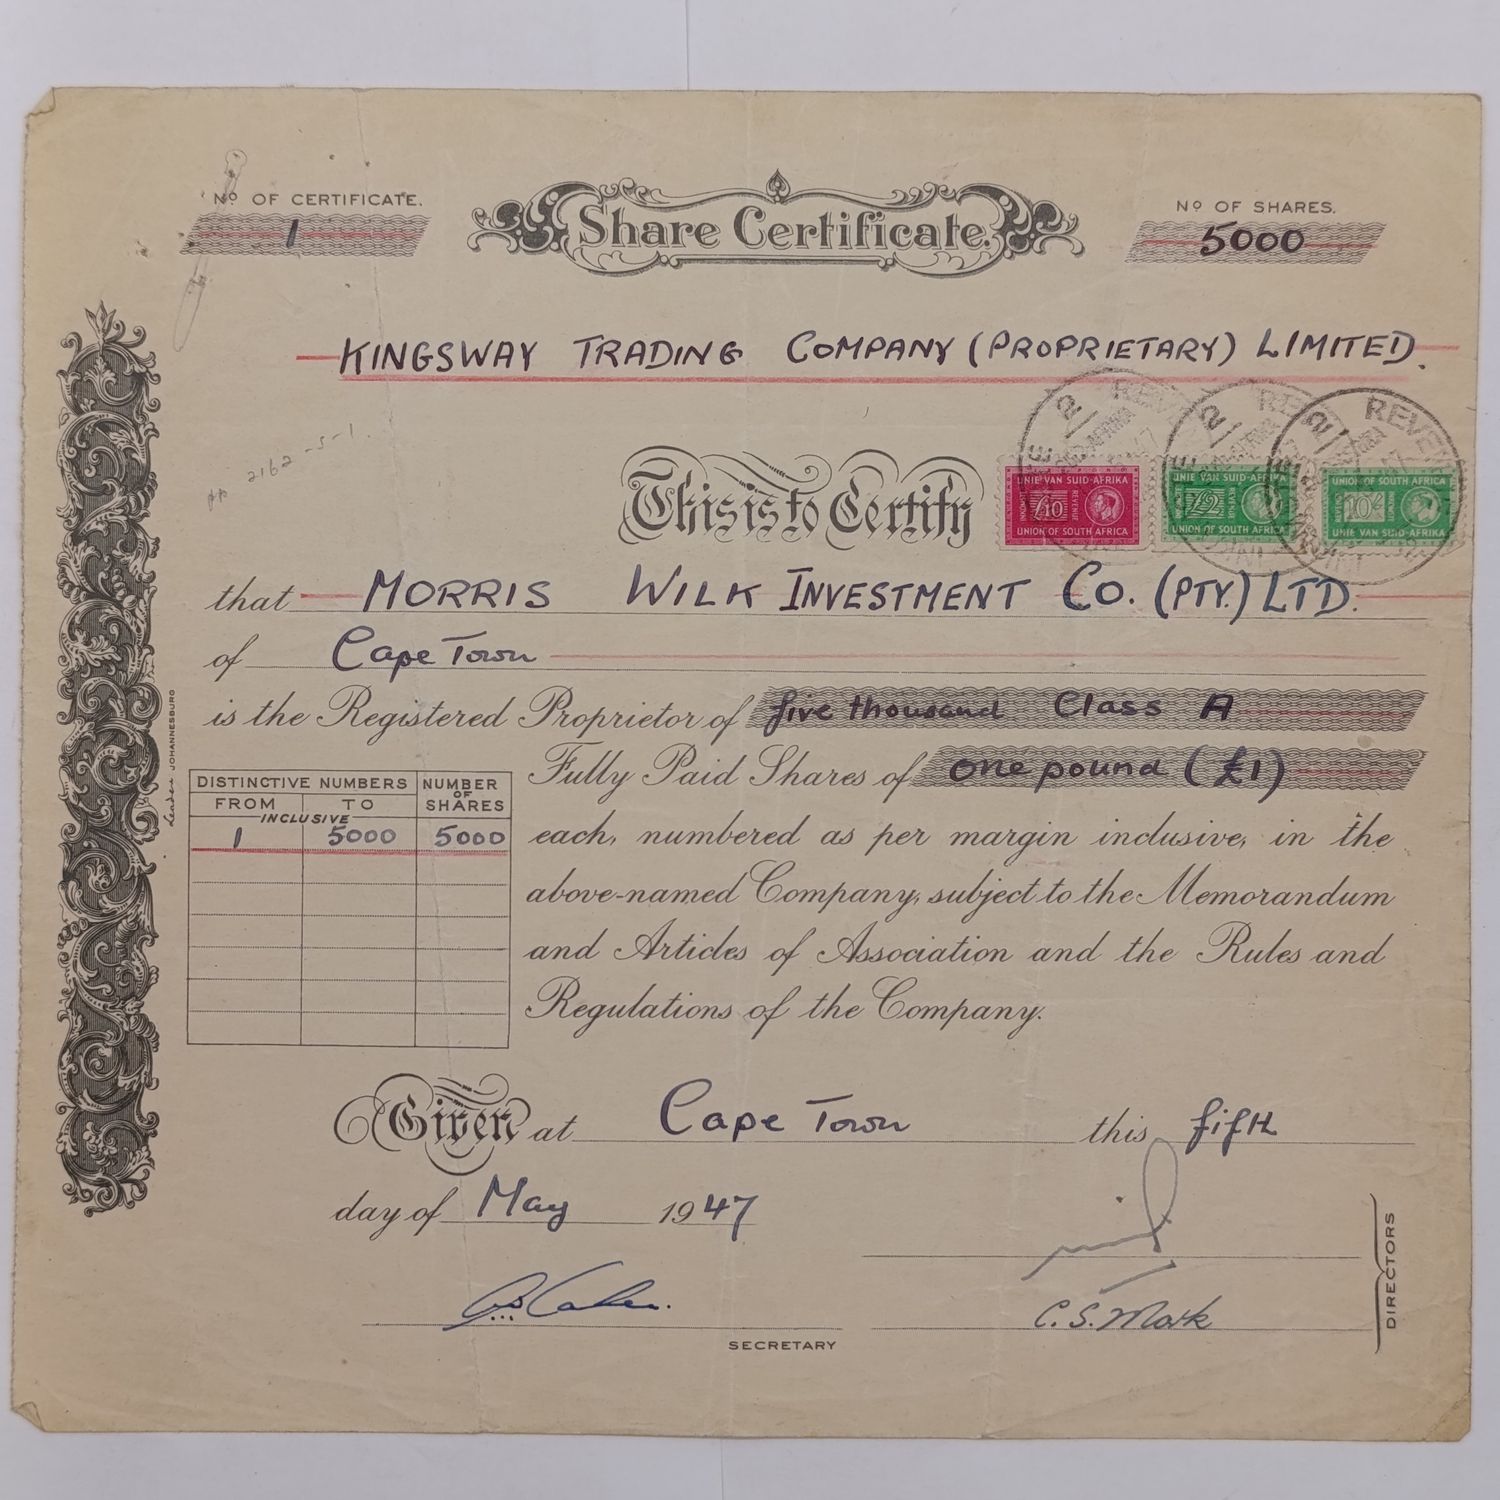 Nº OF CERTIFICATE.
1
Share Certificate.
Nº OF SHARES.
5000
KINGSWAY TRADING COMPANY (PROPRIETARY) LIMITED.
pp 2162-5-1.
This is to Certify
UNIE VAN SUID-AFRIKA
£10
REVENUE
UNION OF SOUTH AFRICA
UNIE VAN SUID-AFRIKA
£2
REVENUE
UNION OF SOUTH AFRICA
UNION OF SOUTH AFRICA
10/-
UNIE VAN SUID-AFRIKA
that MORRIS WILK INVESTMENT CO. (PTY.) LTD.
of Cape Town
is the Registered Proprietor of five thousand Class A
Fully Paid Shares of one pound (£1)
each, numbered as per margin inclusive, in the
above-named Company, subject to the Memorandum
and Articles of Association and the Rules and
Regulations of the Company.
DISTINCTIVE NUMBERS NUMBER OF SHARES
FROM TO
INCLUSIVE
1 5000 5000
JOHANNESBURG
Given at Cape Town this fifth
day of May 1947
C. S. Mark
SECRETARY
DIRECTORS